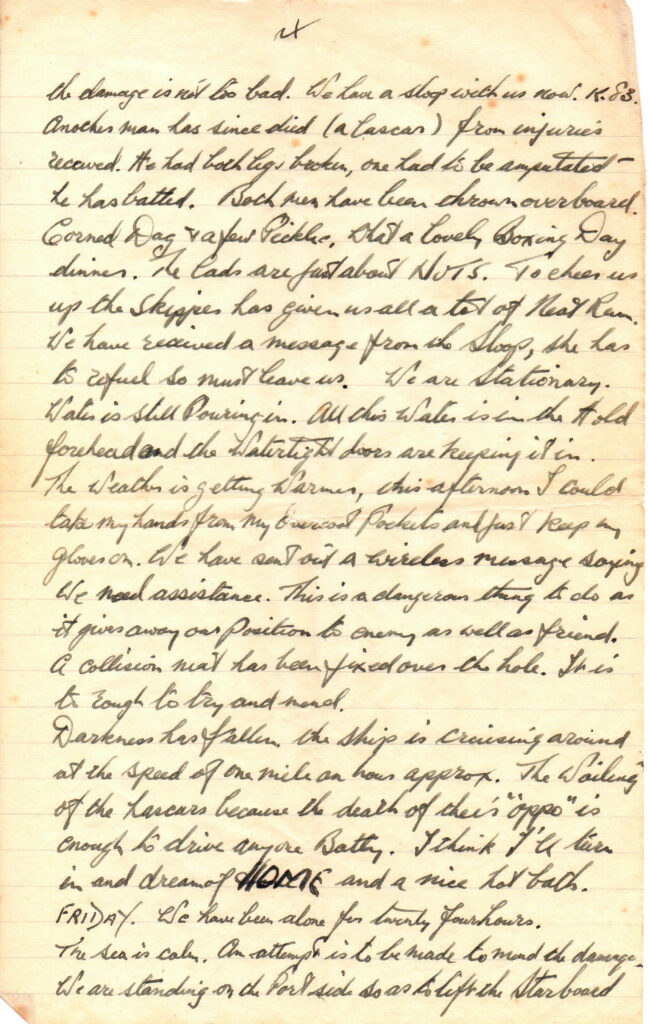 4
the damage is not too bad. We have a sloop with us now. K.83.
Another man has since died (a lascar) from injuries
received. He had both legs broken, one had to be amputated -
he has batted. Both men have been thrown overboard.
Corned Dog & a few Pickle, What a lovely Boxing Day
dinner. The lads are just about NUTS. To cheer us
up the Skipper has given us all a tot of Neat Rum.
We have received a message from the Sloop, she has
to refuel so must leave us. We are Stationary.
Water is still Pouring in. All this Water is in the Hold
forehead and the Watertight doors are keeping it in.
The Weather is getting Warmer, this afternoon I could
take my hands from my Overcoat Pockets and just keep my
gloves on. We have sent out a wireless message saying
We need assistance. This is a dangerous thing to do as
it gives away our Position to enemy as well as friend.
A collision mat has been fixed over the hole. It is
to rough to try and mend.
Darkness has fallen the ship is cruising around
at the speed of one mile an hour approx. The Wailing
of the Lascars because the death of their "oppo" is
enough to drive anyone Batty. I think I'll turn
in and dream of HOME and a nice hot bath.
FRIDAY. We have been alone for twenty four hours.
The sea is calm. An attempt is to be made to mend the damage.
We are standing on the Port side so as to lift the Starboard